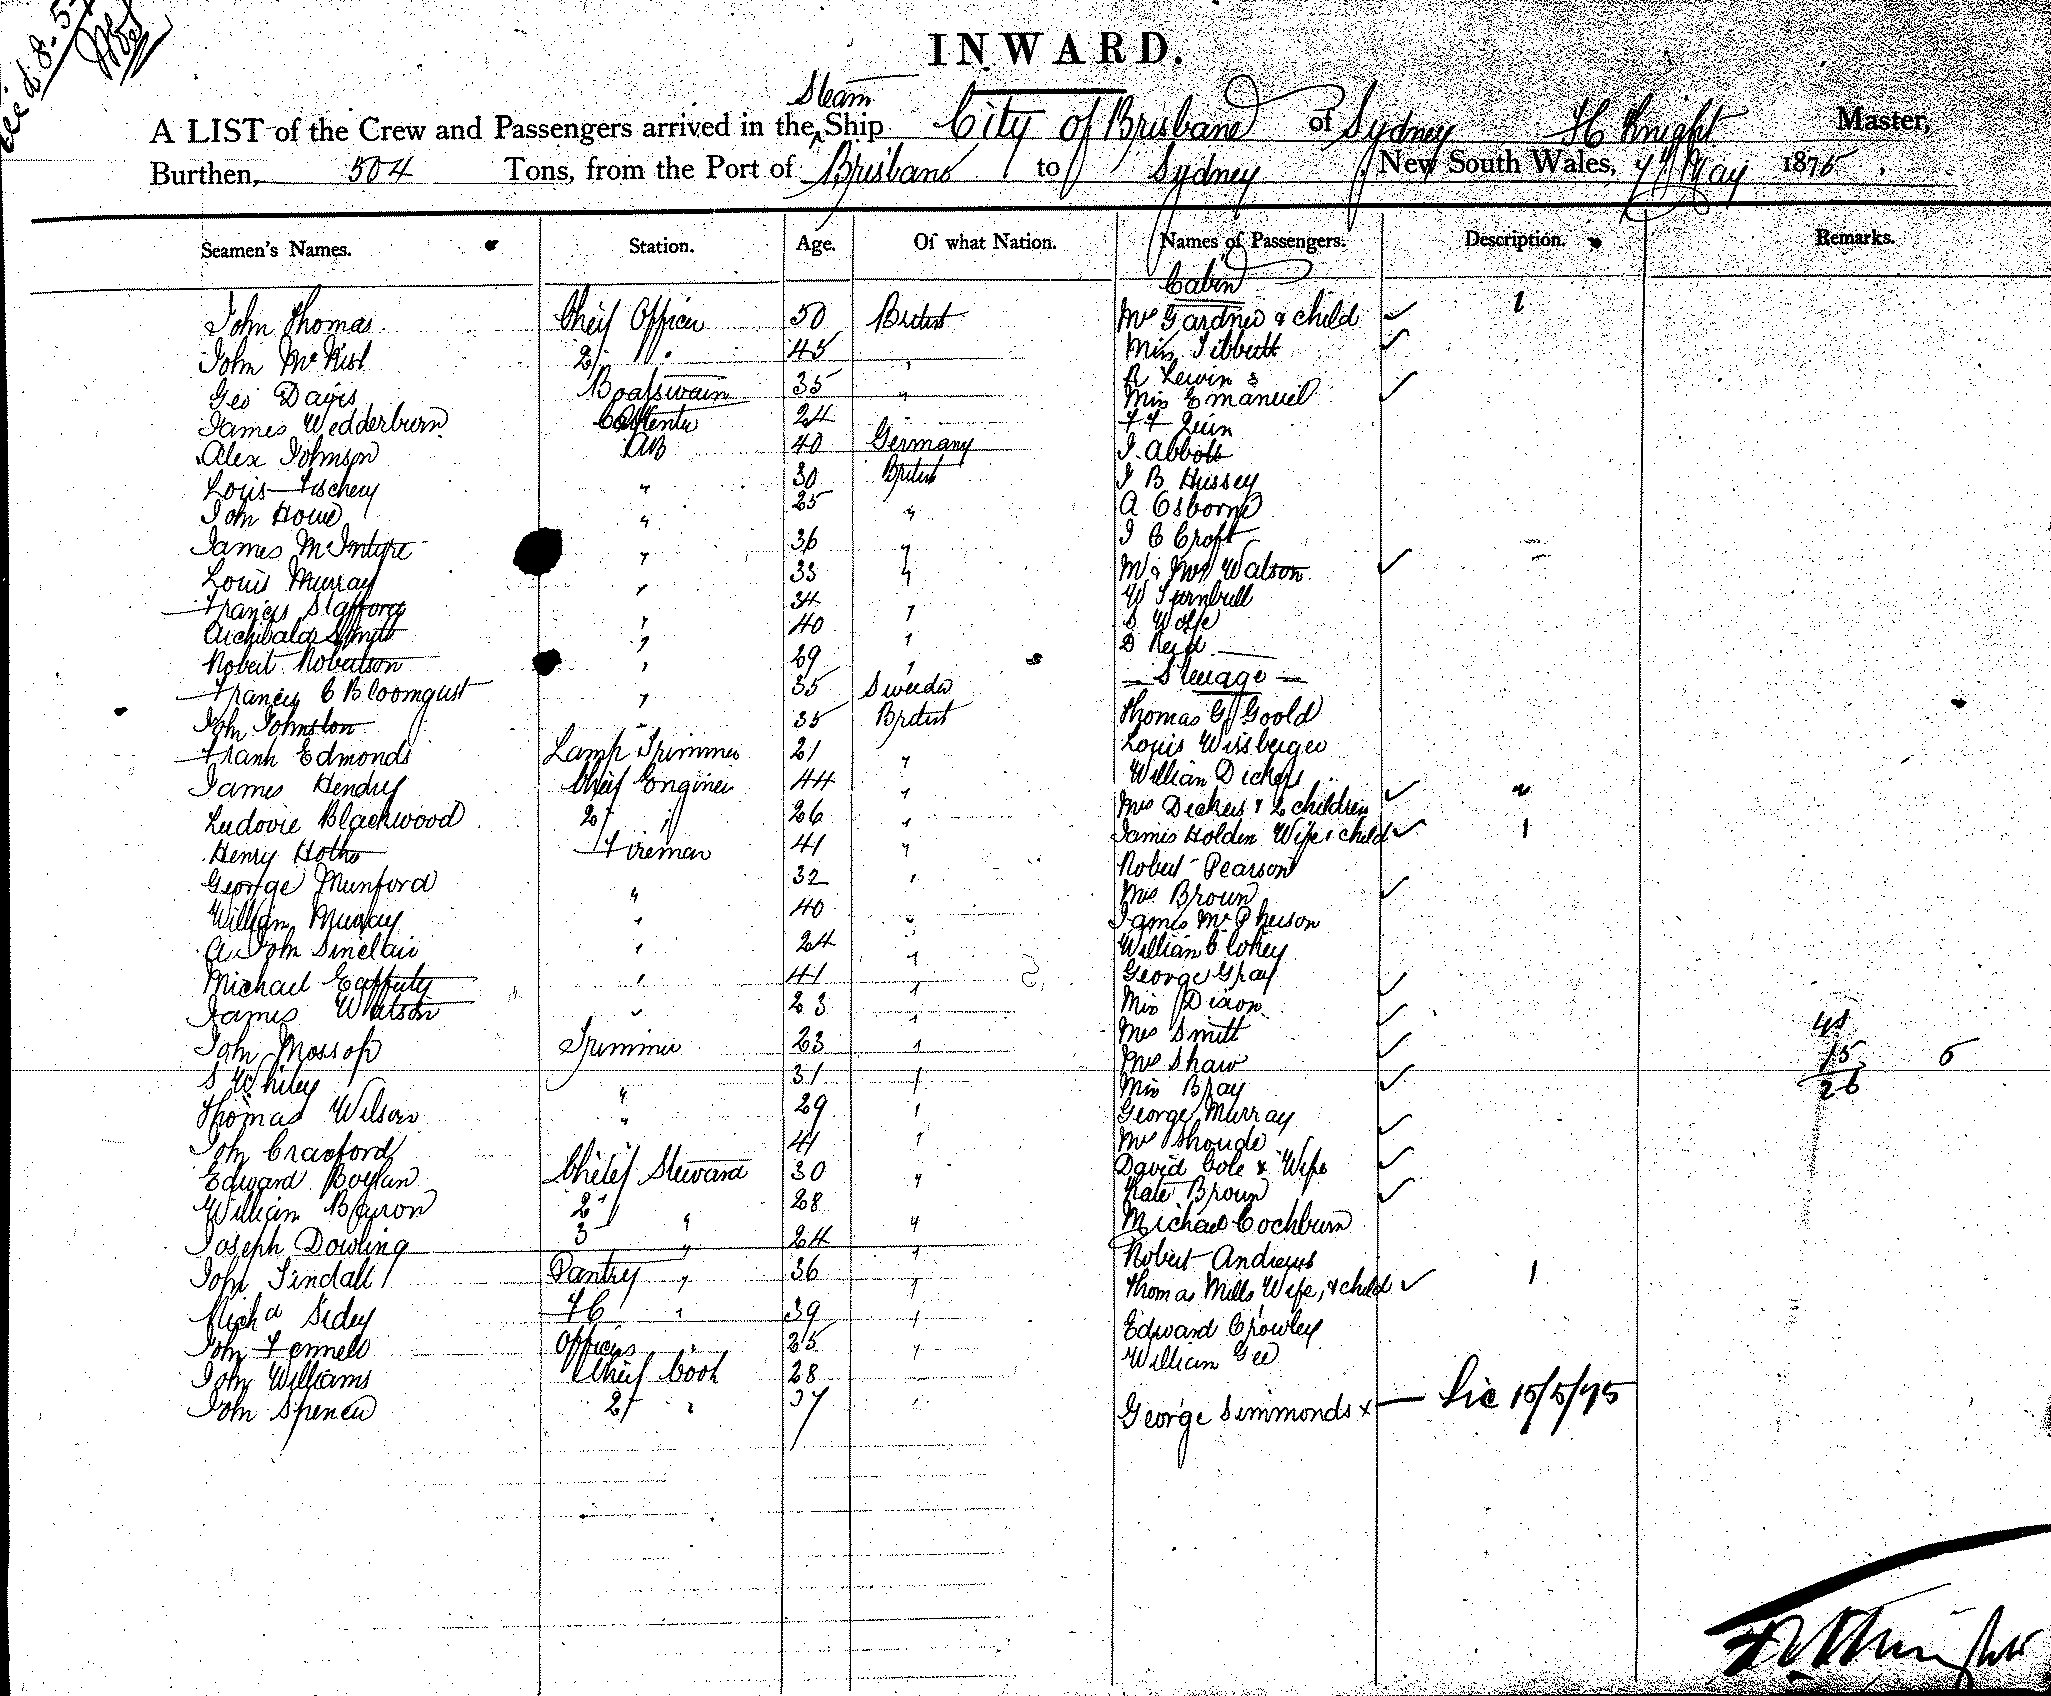 INWARD.
Steam
A LIST of the Crew and Passengers arrived in the Ship City of Brisbane of Sydney H Knight Master,
Burthen, 504 Tons, from the Port of Brisbane to Sydney, New South Wales, 7th May 1875.
Seamen's Names. Station. Age. Of what Nation. Names of Passengers. Description. Remarks.
Cabin
John Thomas Cheif Officer 50 British Mrs Gardner & child ✓ 1
John 2/ " 45 " Miss Tibbett ✓
Geo Davis Boatswain 35 " R Lewin &
Miss Emanuel ✓
James Wedderburn 24
Alex Johnson AB 40 Germany J. Abbott
Louis Fischery " 30 British J B Hussey
John Howe " 25 " A Osborne
James McIntyre " 36 " J C Croft
Louis Murray " 33 " Mr & Mrs Watson ✓
Francis Stafford " 34 " W Turnbull
Archibald Smith " 40 " S Wolfe
Robert Robertson " 29 " D
— Steerage —
Francis C Bloomqust " 35 Sweden
John Johnston " 35 British Thomas G Goold
Frank Edmonds Lamp Trimmer 21 " Louis Wissberger
James Hendry Cheif Enginer 44 " William Dickers
Ludovic Blackwood 2/ " 26 " Mrs Dickers & 2 children ✓ 2
Henry Fireman 41 " James Holden Wife & child ✓ 1
George Munford " 32 " Robert Pearson
William Murray " 40 " Mrs Brown ✓
A John Sinclair " 24 " James McPherson
William
Michael " 41 " George Gray
James Watson " 23 " Miss Dixon ✓
John Mossop Trimmer 23 " Mrs Smith ✓
S Whiley " 31 " Mrs Shaw ✓
Thomas Wilson " 29 " Miss Bray ✓
George Murray
John Crawford 41 " Mrs ✓
Edward Boylan Chief Steward 30 " David Cole & Wife ✓
William Byron 2 " 28 " Kate Brown ✓
Joseph Dowling 3 " 24 " Michael Cochburn
John Tindall Pantry " 36 " Robert Andrews
Mich'd Sidey FC " 39 " Thomas Mills Wife, & child ✓ 1
John Fennell Officers " 25 " Edward Crowley
John Williams Cheif Cook 28 " William Gee
John Spencer 2/ " 37 " George Simmonds x — Lic 15/5/75
41
15 6
26